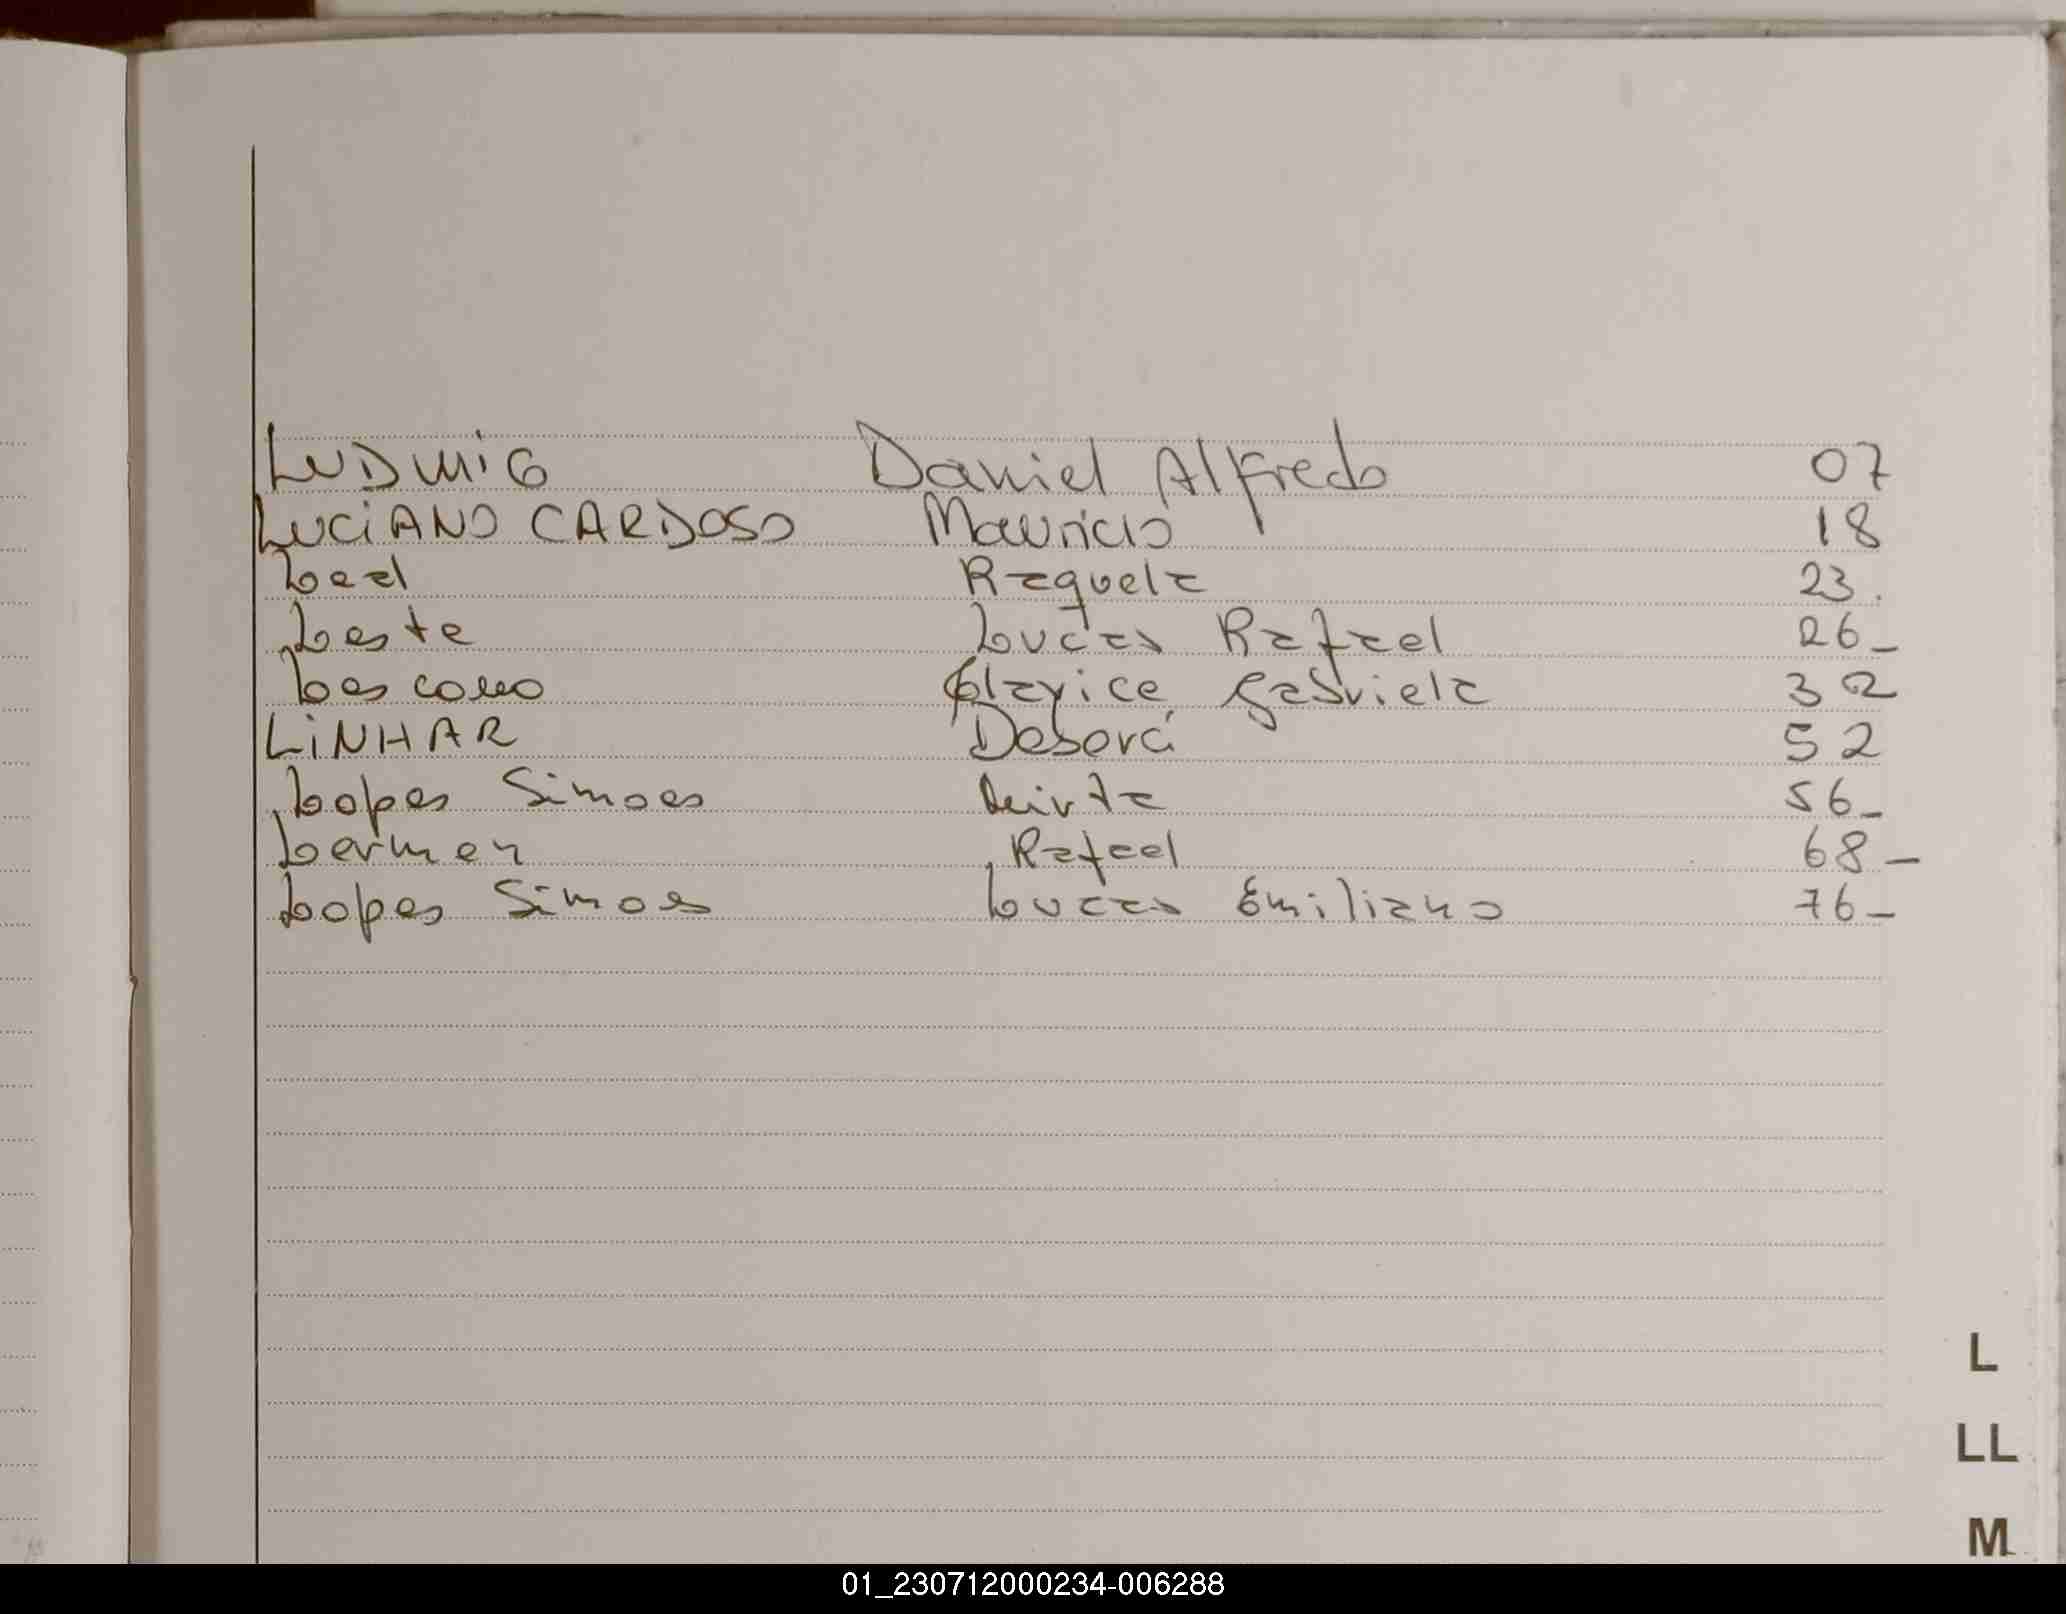 LUDWIG Daniel Alfredo 07
LUCIANO CARDOSO Mauricio 18
Leal Raquela 23.
Leste Lucas Rafael 26_
Lescomo Clarice Gabriela 32
LINHAR Debora 52
Lopes Simoes Mirta 56_
Lermen Rafael 68_
Lopes Simoes Lucas Emiliano 76_
L
LL
M
01_230712000234-006288